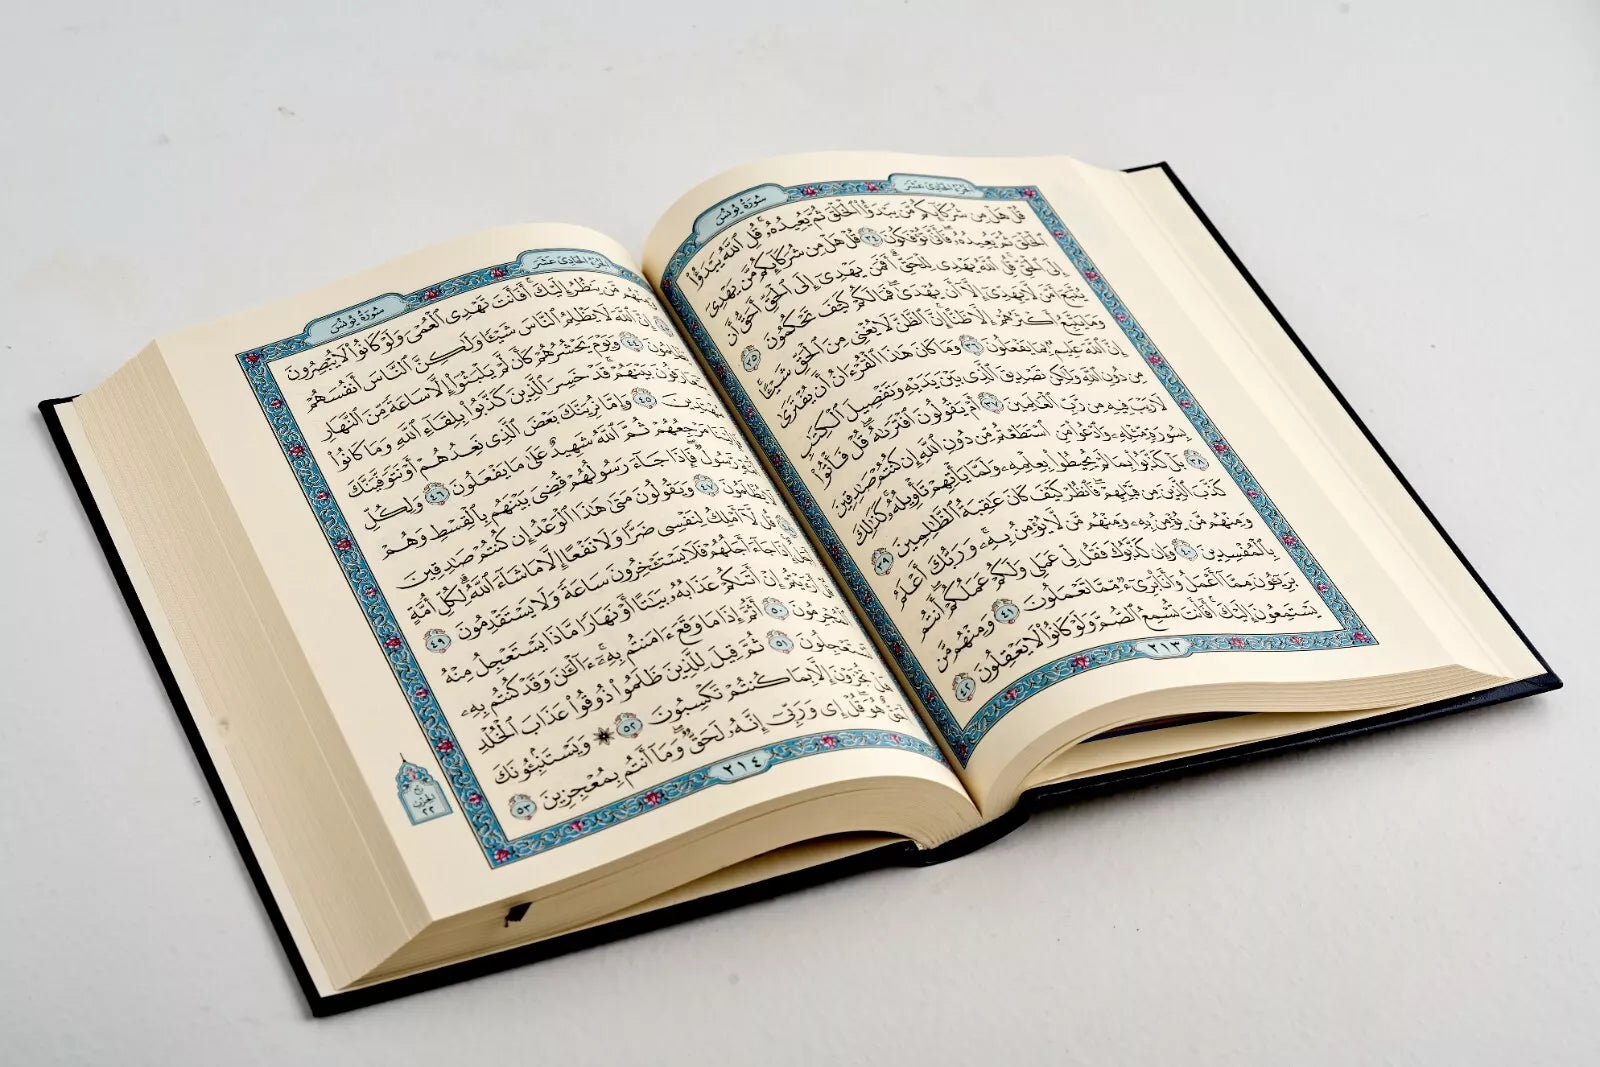 الجزء الحادي عشر
سورة يونس
قُلْ هَلْ مِن شُرَكَآئِكُم مَّن يَبْدَؤُا۟ ٱلْخَلْقَ ثُمَّ يُعِيدُهُۥ ۚ قُلِ ٱللَّهُ يَبْدَؤُا۟
ٱلْخَلْقَ ثُمَّ يُعِيدُهُۥ ۖ فَأَنَّىٰ تُؤْفَكُونَ ٣٤ قُلْ هَلْ مِن شُرَكَآئِكُم مَّن يَهْدِىٓ
إِلَى ٱلْحَقِّ ۚ قُلِ ٱللَّهُ يَهْدِى لِلْحَقِّ ۗ أَفَمَن يَهْدِىٓ إِلَى ٱلْحَقِّ أَحَقُّ أَن
يُتَّبَعَ أَمَّن لَّا يَهِدِّىٓ إِلَّآ أَن يُهْدَىٰ ۖ فَمَا لَكُمْ كَيْفَ تَحْكُمُونَ ٣٥
وَمَا يَتَّبِعُ أَكْثَرُهُمْ إِلَّا ظَنًّا ۚ إِنَّ ٱلظَّنَّ لَا يُغْنِى مِنَ ٱلْحَقِّ شَيْـًٔا ۚ
إِنَّ ٱللَّهَ عَلِيمٌۢ بِمَا يَفْعَلُونَ ٣٦ وَمَا كَانَ هَٰذَا ٱلْقُرْءَانُ أَن يُفْتَرَىٰ
مِن دُونِ ٱللَّهِ وَلَٰكِن تَصْدِيقَ ٱلَّذِى بَيْنَ يَدَيْهِ وَتَفْصِيلَ ٱلْكِتَٰبِ
لَا رَيْبَ فِيهِ مِن رَّبِّ ٱلْعَٰلَمِينَ ٣٧ أَمْ يَقُولُونَ ٱفْتَرَىٰهُ ۖ قُلْ فَأْتُوا۟
بِسُورَةٍ مِّثْلِهِۦ وَٱدْعُوا۟ مَنِ ٱسْتَطَعْتُم مِّن دُونِ ٱللَّهِ إِن كُنتُمْ صَٰدِقِينَ
٣٨ بَلْ كَذَّبُوا۟ بِمَا لَمْ يُحِيطُوا۟ بِعِلْمِهِۦ وَلَمَّا يَأْتِهِمْ تَأْوِيلُهُۥ ۚ كَذَٰلِكَ
كَذَّبَ ٱلَّذِينَ مِن قَبْلِهِمْ ۖ فَٱنظُرْ كَيْفَ كَانَ عَٰقِبَةُ ٱلظَّٰلِمِينَ ٣٩
وَمِنْهُم مَّن يُؤْمِنُ بِهِۦ وَمِنْهُم مَّن لَّا يُؤْمِنُ بِهِۦ ۚ وَرَبُّكَ أَعْلَمُ
بِٱلْمُفْسِدِينَ ٤٠ وَإِن كَذَّبُوكَ فَقُل لِّى عَمَلِى وَلَكُمْ عَمَلُكُمْ ۖ أَنتُم
بَرِيٓـُٔونَ مِمَّآ أَعْمَلُ وَأَنَا۠ بَرِىٓءٌ مِّمَّا تَعْمَلُونَ ٤١ وَمِنْهُم مَّن
يَسْتَمِعُونَ إِلَيْكَ ۚ أَفَأَنتَ تُسْمِعُ ٱلصُّمَّ وَلَوْ كَانُوا۟ لَا يَعْقِلُونَ ٤٢
٢١٣
الجزء الحادي عشر
سورة يونس
وَمِنْهُم مَّن يَنظُرُ إِلَيْكَ ۚ أَفَأَنتَ تَهْدِى ٱلْعُمْىَ وَلَوْ كَانُوا۟ لَا يُبْصِرُونَ
إِنَّ ٱللَّهَ لَا يَظْلِمُ ٱلنَّاسَ شَيْـًٔا وَلَٰكِنَّ ٱلنَّاسَ أَنفُسَهُمْ
٤٤ وَيَوْمَ يَحْشُرُهُمْ كَأَن لَّمْ يَلْبَثُوٓا۟ إِلَّا سَاعَةً مِّنَ ٱلنَّهَارِ
بَيْنَهُمْ ۚ قَدْ خَسِرَ ٱلَّذِينَ كَذَّبُوا۟ بِلِقَآءِ ٱللَّهِ وَمَا كَانُوا۟
٤٥ وَإِمَّا نُرِيَنَّكَ بَعْضَ ٱلَّذِى نَعِدُهُمْ أَوْ نَتَوَفَّيَنَّكَ
مَرْجِعُهُمْ ثُمَّ ٱللَّهُ شَهِيدٌ عَلَىٰ مَا يَفْعَلُونَ ٤٦ وَلِكُلِّ
رَّسُولٌ ۖ فَإِذَا جَآءَ رَسُولُهُمْ قُضِىَ بَيْنَهُم بِٱلْقِسْطِ وَهُمْ
٤٧ وَيَقُولُونَ مَتَىٰ هَٰذَا ٱلْوَعْدُ إِن كُنتُمْ صَٰدِقِينَ
قُل لَّآ أَمْلِكُ لِنَفْسِى ضَرًّا وَلَا نَفْعًا إِلَّا مَا شَآءَ ٱللَّهُ ۗ لِكُلِّ أُمَّةٍ
إِذَا جَآءَ أَجَلُهُمْ فَلَا يَسْتَـْٔخِرُونَ سَاعَةً ۖ وَلَا يَسْتَقْدِمُونَ ٤٩
إِنْ أَتَىٰكُمْ عَذَابُهُۥ بَيَٰتًا أَوْ نَهَارًا مَّاذَا يَسْتَعْجِلُ مِنْهُ
ٱلْمُجْرِمُونَ ٥٠ أَثُمَّ إِذَا مَا وَقَعَ ءَامَنتُم بِهِۦٓ ۚ ءَآلْـَٰٔنَ وَقَدْ كُنتُم بِهِۦ
تَسْتَعْجِلُونَ ٥١ ثُمَّ قِيلَ لِلَّذِينَ ظَلَمُوا۟ ذُوقُوا۟ عَذَابَ ٱلْخُلْدِ
هَلْ تُجْزَوْنَ إِلَّا بِمَا كُنتُمْ تَكْسِبُونَ ٥٢ ۞ وَيَسْتَنۢبِـُٔونَكَ
أَحَقٌّ هُوَ ۖ قُلْ إِى وَرَبِّىٓ إِنَّهُۥ لَحَقٌّ ۖ وَمَآ أَنتُم بِمُعْجِزِينَ ٥٣
الحزب
٢٢
٢١٤